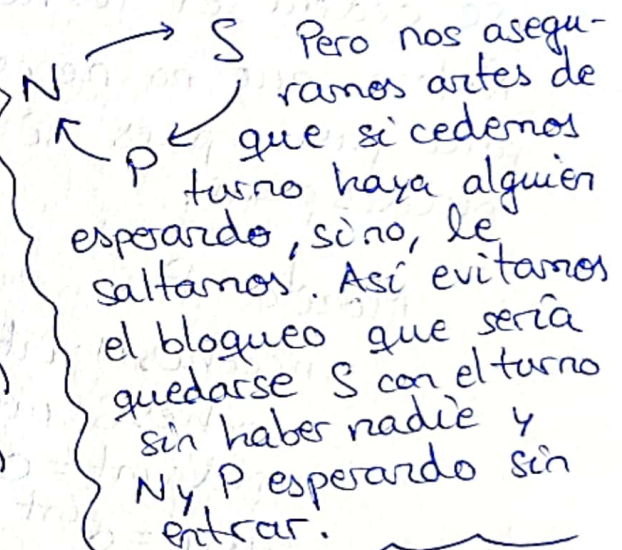 N → S Pero nos asegu-
ramos antes de
P que si cedemos
turno haya alguien
esperando, sino, le
saltamos. Así evitamos
el bloqueo que sería
quedarse S con el turno
sin haber nadie y
N y P esperando sin
entrar.